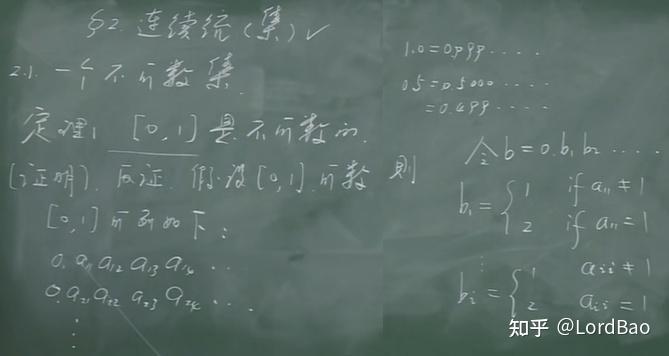 §2. 连续统(集)√
2.1. 一个不可数集.
定理1 [0,1]是不可数的.
(证明). 反证. 假设[0,1]可数 则
[0,1]可列如下:
0. a₁₁ a₁₂ a₁₃ a₁₄ ...
0. a₂₁ a₂₂ a₂₃ a₂₄ ...
⋮
1.0=0.999.....
0.5=0.5000.....
=0.499.....
令b=0.b₁b₂.....
b₁={1 if a₁₁≠1
2 if a₁₁=1
⋮
bᵢ={1 aᵢᵢ≠1
2 aᵢᵢ=1
知乎 @LordBao